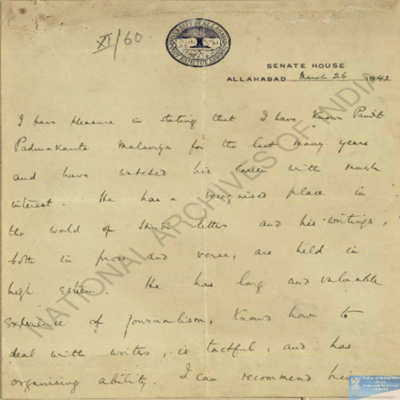 XI/60.
SENATE HOUSE
ALLAHABAD March 26 1942
I have pleasure in stating that I have known Pandit
Padmakanta Malaviya for the last many years
and have watched his career with much
interest. He has a recognised place in
the world of Hindi letters and his writings,
both in prose and verse, are held in
high esteem. He has long and valuable
experience of journalism, knows how to
deal with writers, is tactful, and has
organising ability. I can recommend him
NATIONAL ARCHIVES OF INDIA